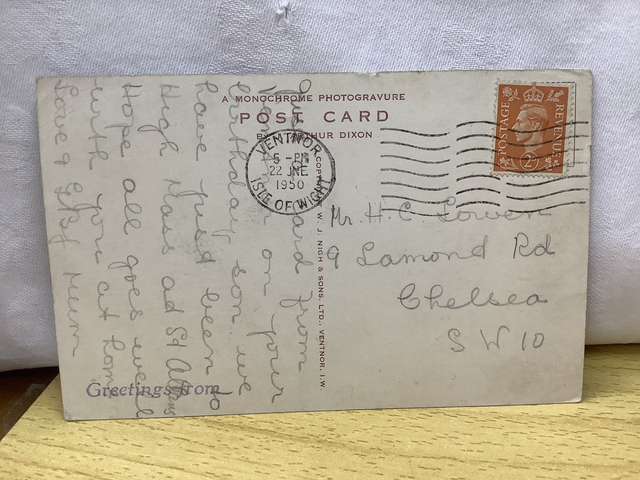 A MONOCHROME PHOTOGRAVURE
POST CARD
BY ARTHUR DIXON
POSTAGE REVENUE
2D
VENTNOR
5 - PM
22 JNE
1950
ISLE OF WIGHT
COPYRIGHT W. J. NIGH & SONS, LTD., VENTNOR, I.W.
card from
on your
birthday son we
have just been to
High Mass ad St
Hope all goes well
with you at home
Love & Mum
Mr. H. C. Lowen
9 Lamond Rd
Chelsea
SW10
Greetings from